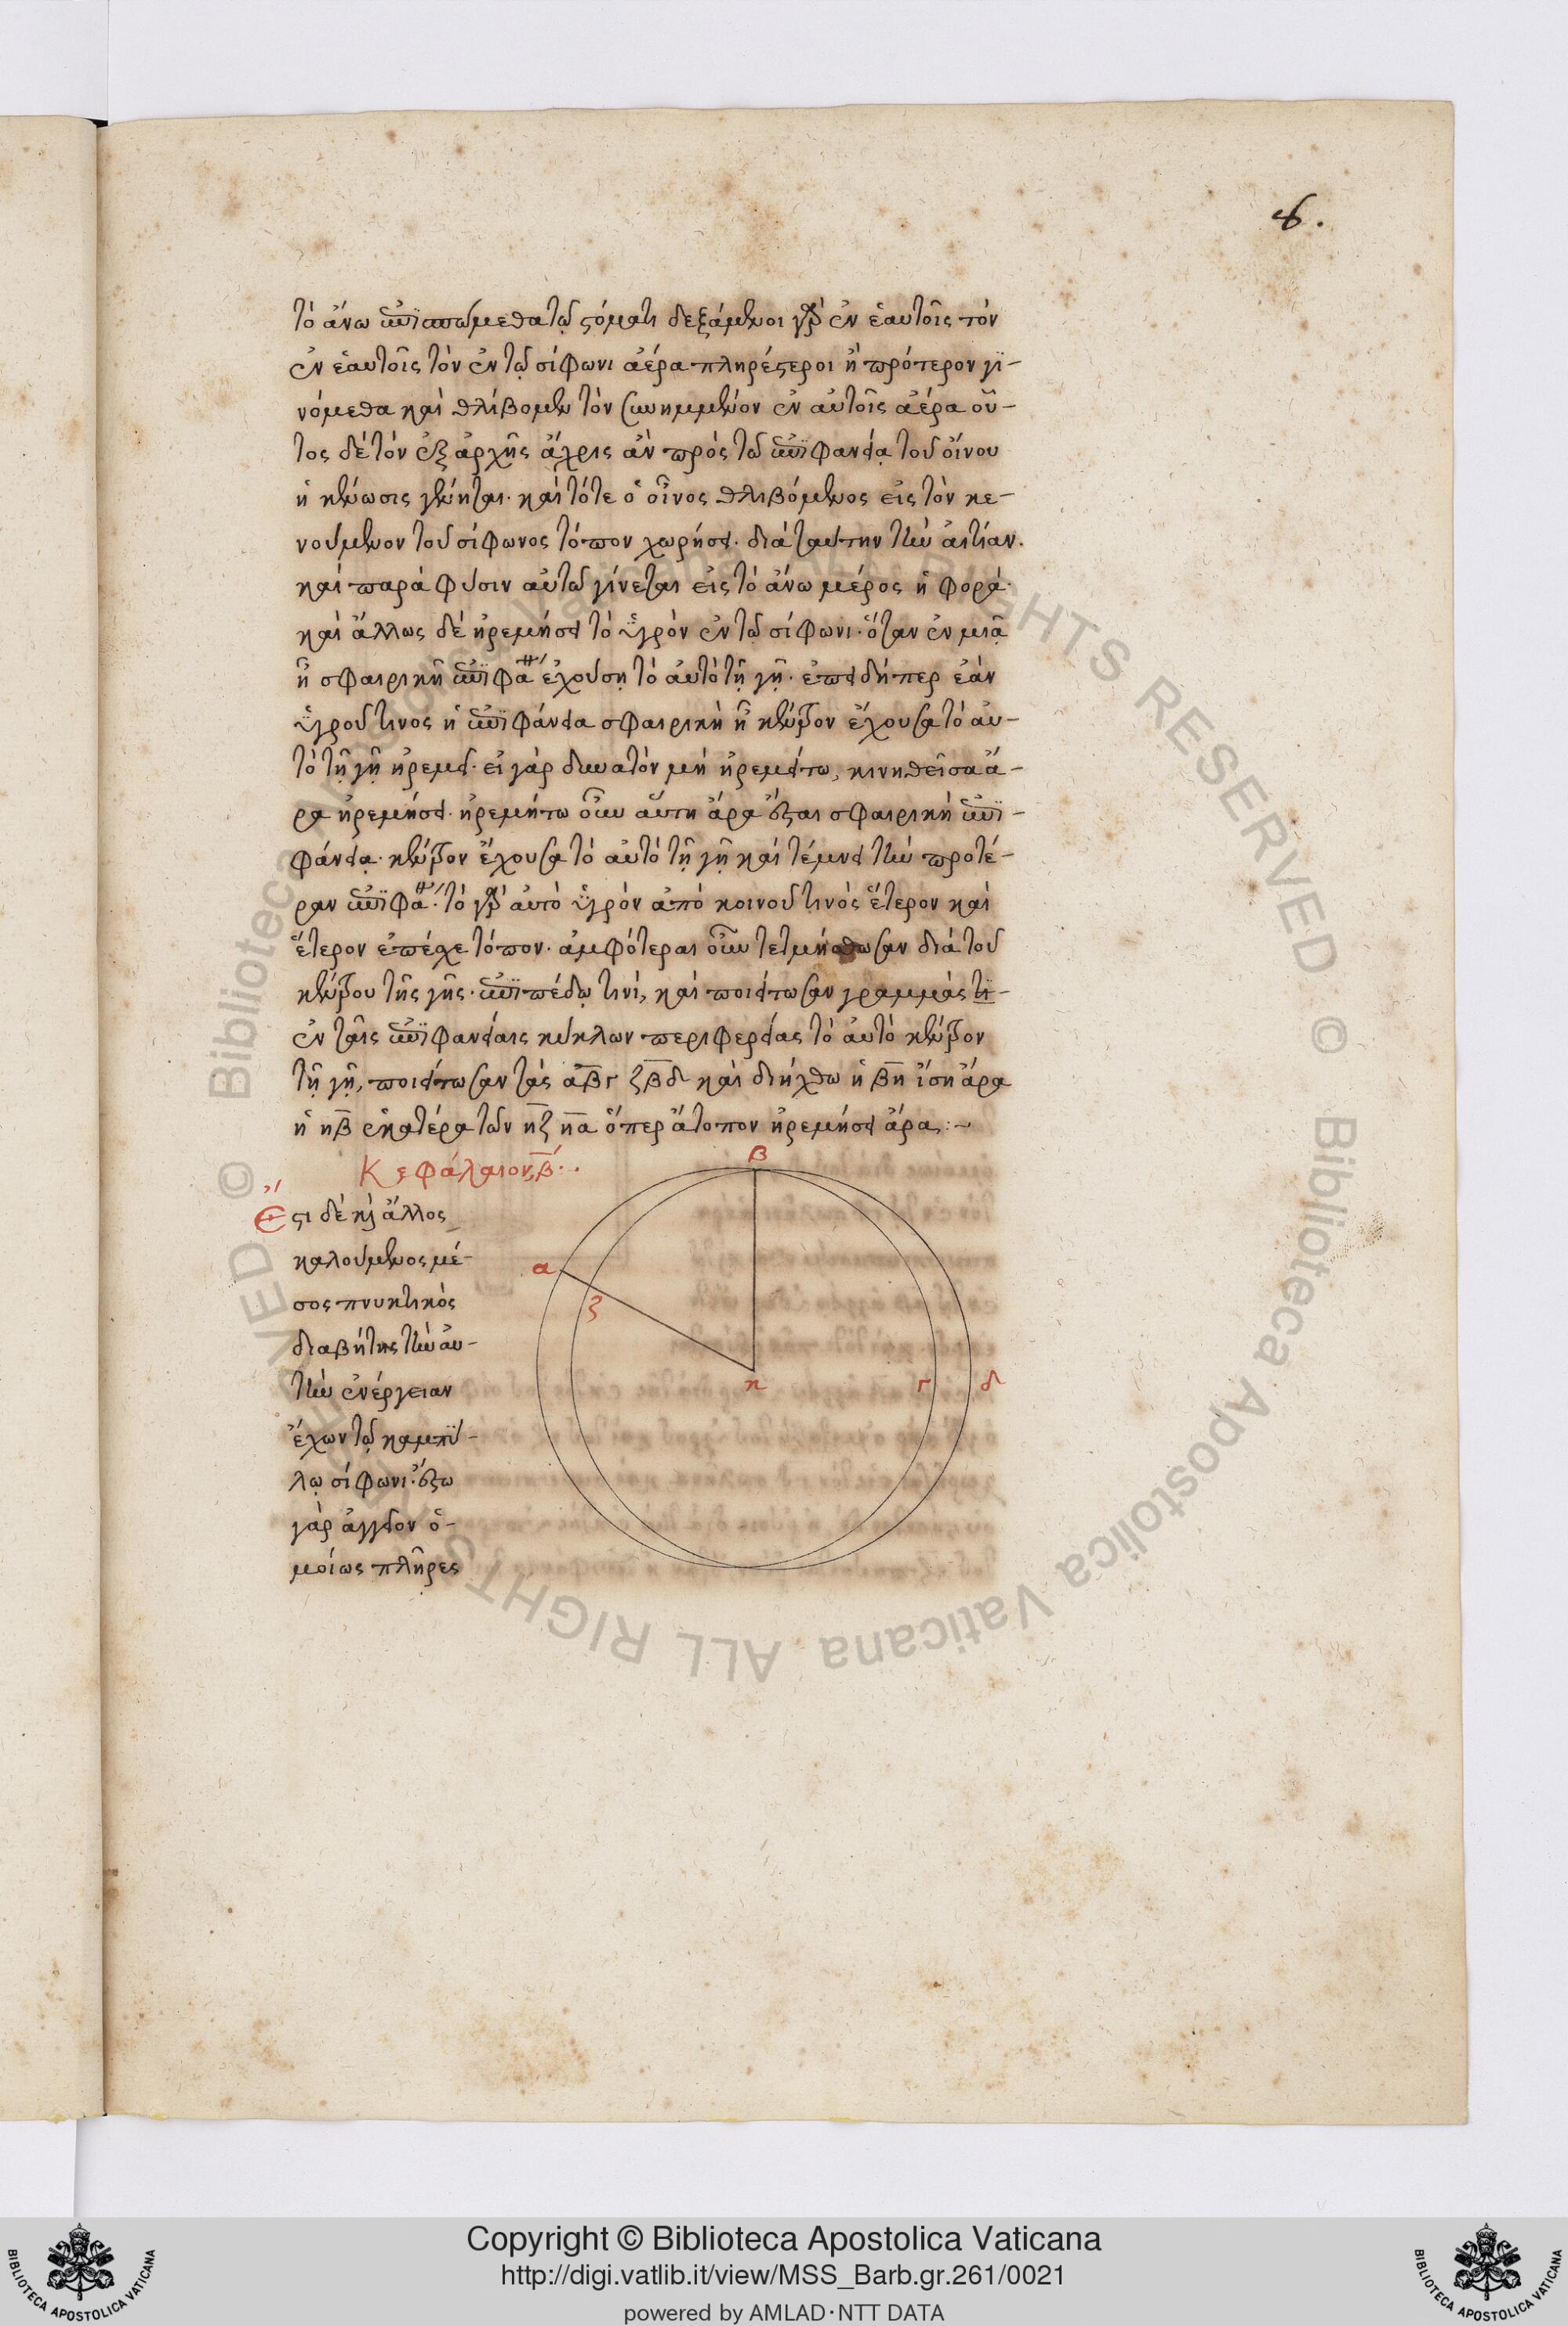 8.
τὸ ἄνω ἐπισπώμεθα τῷ στόματι δεξάμενοι γὰρ ἐν ἑαυτοῖς τὸν
ἐν ἑαυτοῖς τὸν ἐν τῷ σίφωνι ἀέρα πληρέστεροι ἢ πρότερον γϊ-
νόμεθα καὶ θλίβομεν τὸν συνημμένον ἐν αὐτοῖς ἀέρα οὗ-
τος δὲ τὸν ἐξ ἀρχῆς ἄχρις ἂν πρὸς τῷ ἐπιφανείᾳ τοῦ οἴνου
ἡ κένωσις γένηται· καὶ τότε ὁ οἶνος θλιβόμενος εἰς τὸν κε-
νούμενον τοῦ σίφωνος τόπον χωρήσει· διὰ ταύτην τὴν αἰτίαν.
καὶ παρὰ φύσιν αὐτῷ γίνεται εἰς τὸ ἄνω μέρος ἡ φορά·
καὶ ἄλλως δὲ ἠρεμήσει τὸ ὑγρὸν ἐν τῷ σίφωνι· ὅταν ἐν μιᾷ
ᾖ σφαιρικῇ ἐπιφα ἐχούσῃ τὸ αὐτὸ τῇ γῇ· ἐπειδήπερ ἐὰν
ὑγροῦ τινος ἡ ἐπιφάνεια σφαιρικὴ ᾖ κέντρον ἔχουσα τὸ αὐ-
τὸ τῇ γῇ ἠρεμεῖ· εἰ γὰρ δυνατὸν μὴ ἠρεμείτω, κινηθεῖσα ἄ-
ρα ἠρεμήσει· ἠρεμήτω οὖν αὕτη ἄρα ἔσται σφαιρικὴ ἐπϊ-
φάνεια· κέντρον ἔχουσα τὸ αὐτὸ τῇ γῇ καὶ τέμνει τὴν προτέ-
ραν ἐπιφα· τὸ γὰρ αὐτὸ ὑγρὸν ἀπὸ κοινοῦ τινὸς ἕτερον καὶ
ἕτερον ἐπέχει τόπον· ἀμφότεραι οὖν τετμήσθωσαν διὰ τοῦ
κέντρου τῆς γῆς· ἐπιπέδῳ τινί, καὶ ποιείτωσαν γραμμάς τϊ-
ἐν ταῖς ἐπιφανείαις κύκλων περιφερείας τὸ αὐτὸ κέντρον
τῇ γῇ, ποιείτωσαν τὰς αβγ ζβδ καὶ διήχθω ἡ βη ἴση ἄρα
ἡ ηβ ἑκατέρα τῶν ηζ ηα ὅπερ ἄτοπον ἠρεμήσει ἄρα :~
Κεφάλαιον, β΄.
Ἔστι δὲ καὶ ἄλλος
καλούμενος μέ-
σος πνυκτικὸς
διαβήτης τὴν αὐ-
τὴν ἐνέργειαν
ἔχων τῷ καμπϋ-
λῳ σίφωνι· ἔστω
γὰρ ἀγγεῖον ὁ-
μοίως πλῆρες
β
α
ζ
κ
γ
δ
Copyright © Biblioteca Apostolica Vaticana
http://digi.vatlib.it/view/MSS_Barb.gr.261/0021
powered by AMLAD·NTT DATA
BIBLIOTECA APOSTOLICA VATICANA
BIBLIOTECA APOSTOLICA VATICANA
© Biblioteca Apostolica Vaticana ALL RIGHTS RESERVED © Biblioteca Apostolica Vaticana ALL RIGHTS RESERVED